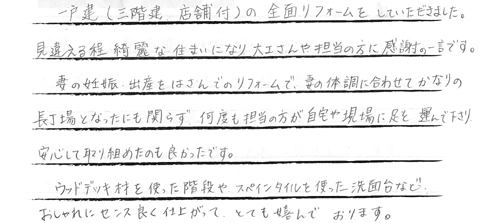 一戸建(三階建 店舗付)の全面リフォームをしていただきました。
見違える程綺麗な住まいになり大工さんや担当の方に感謝の一言です。
妻の妊娠・出産をはさんでのリフォームで、妻の体調に合わせてかなりの
長丁場となったにも関らず、何度も担当の方が自宅や現場に足を運んで下さり
安心して取り組めたのも良かったです。
ウッドデッキ材を使った階段や、スペインタイルを使った洗面台など、
おしゃれにセンス良く仕上がって、とても嬉んでおります。